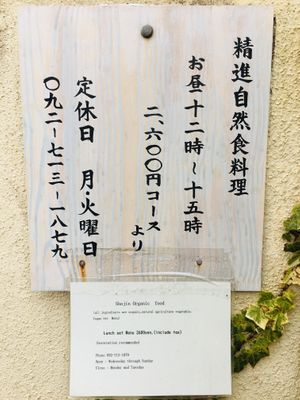 精進自然食料理
お昼十二時～十五時
二、六〇〇円コース
より
定休日 月・火曜日
〇九二ー七一三ー一八七九
Shojin Organic Food
(all ingredients are organic,natural agriculture vegetable.
Vegan set Menu)
Lunch set Menu 2600yen.(include tax)
Reservation recommended
Phone 092-713-1879
Open : Wednesday through Sunday
Close : Monday and Tuesday